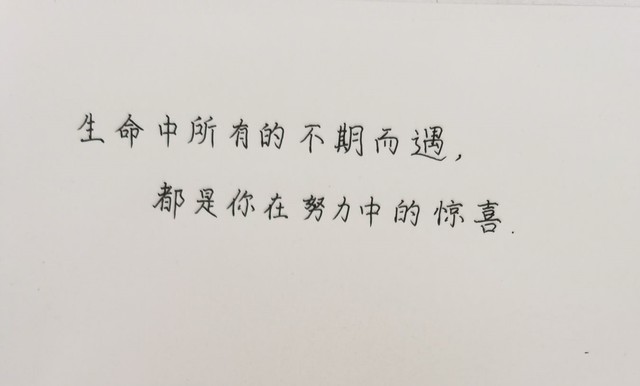 生命中所有的不期而遇,
都是你在努力中的惊喜.